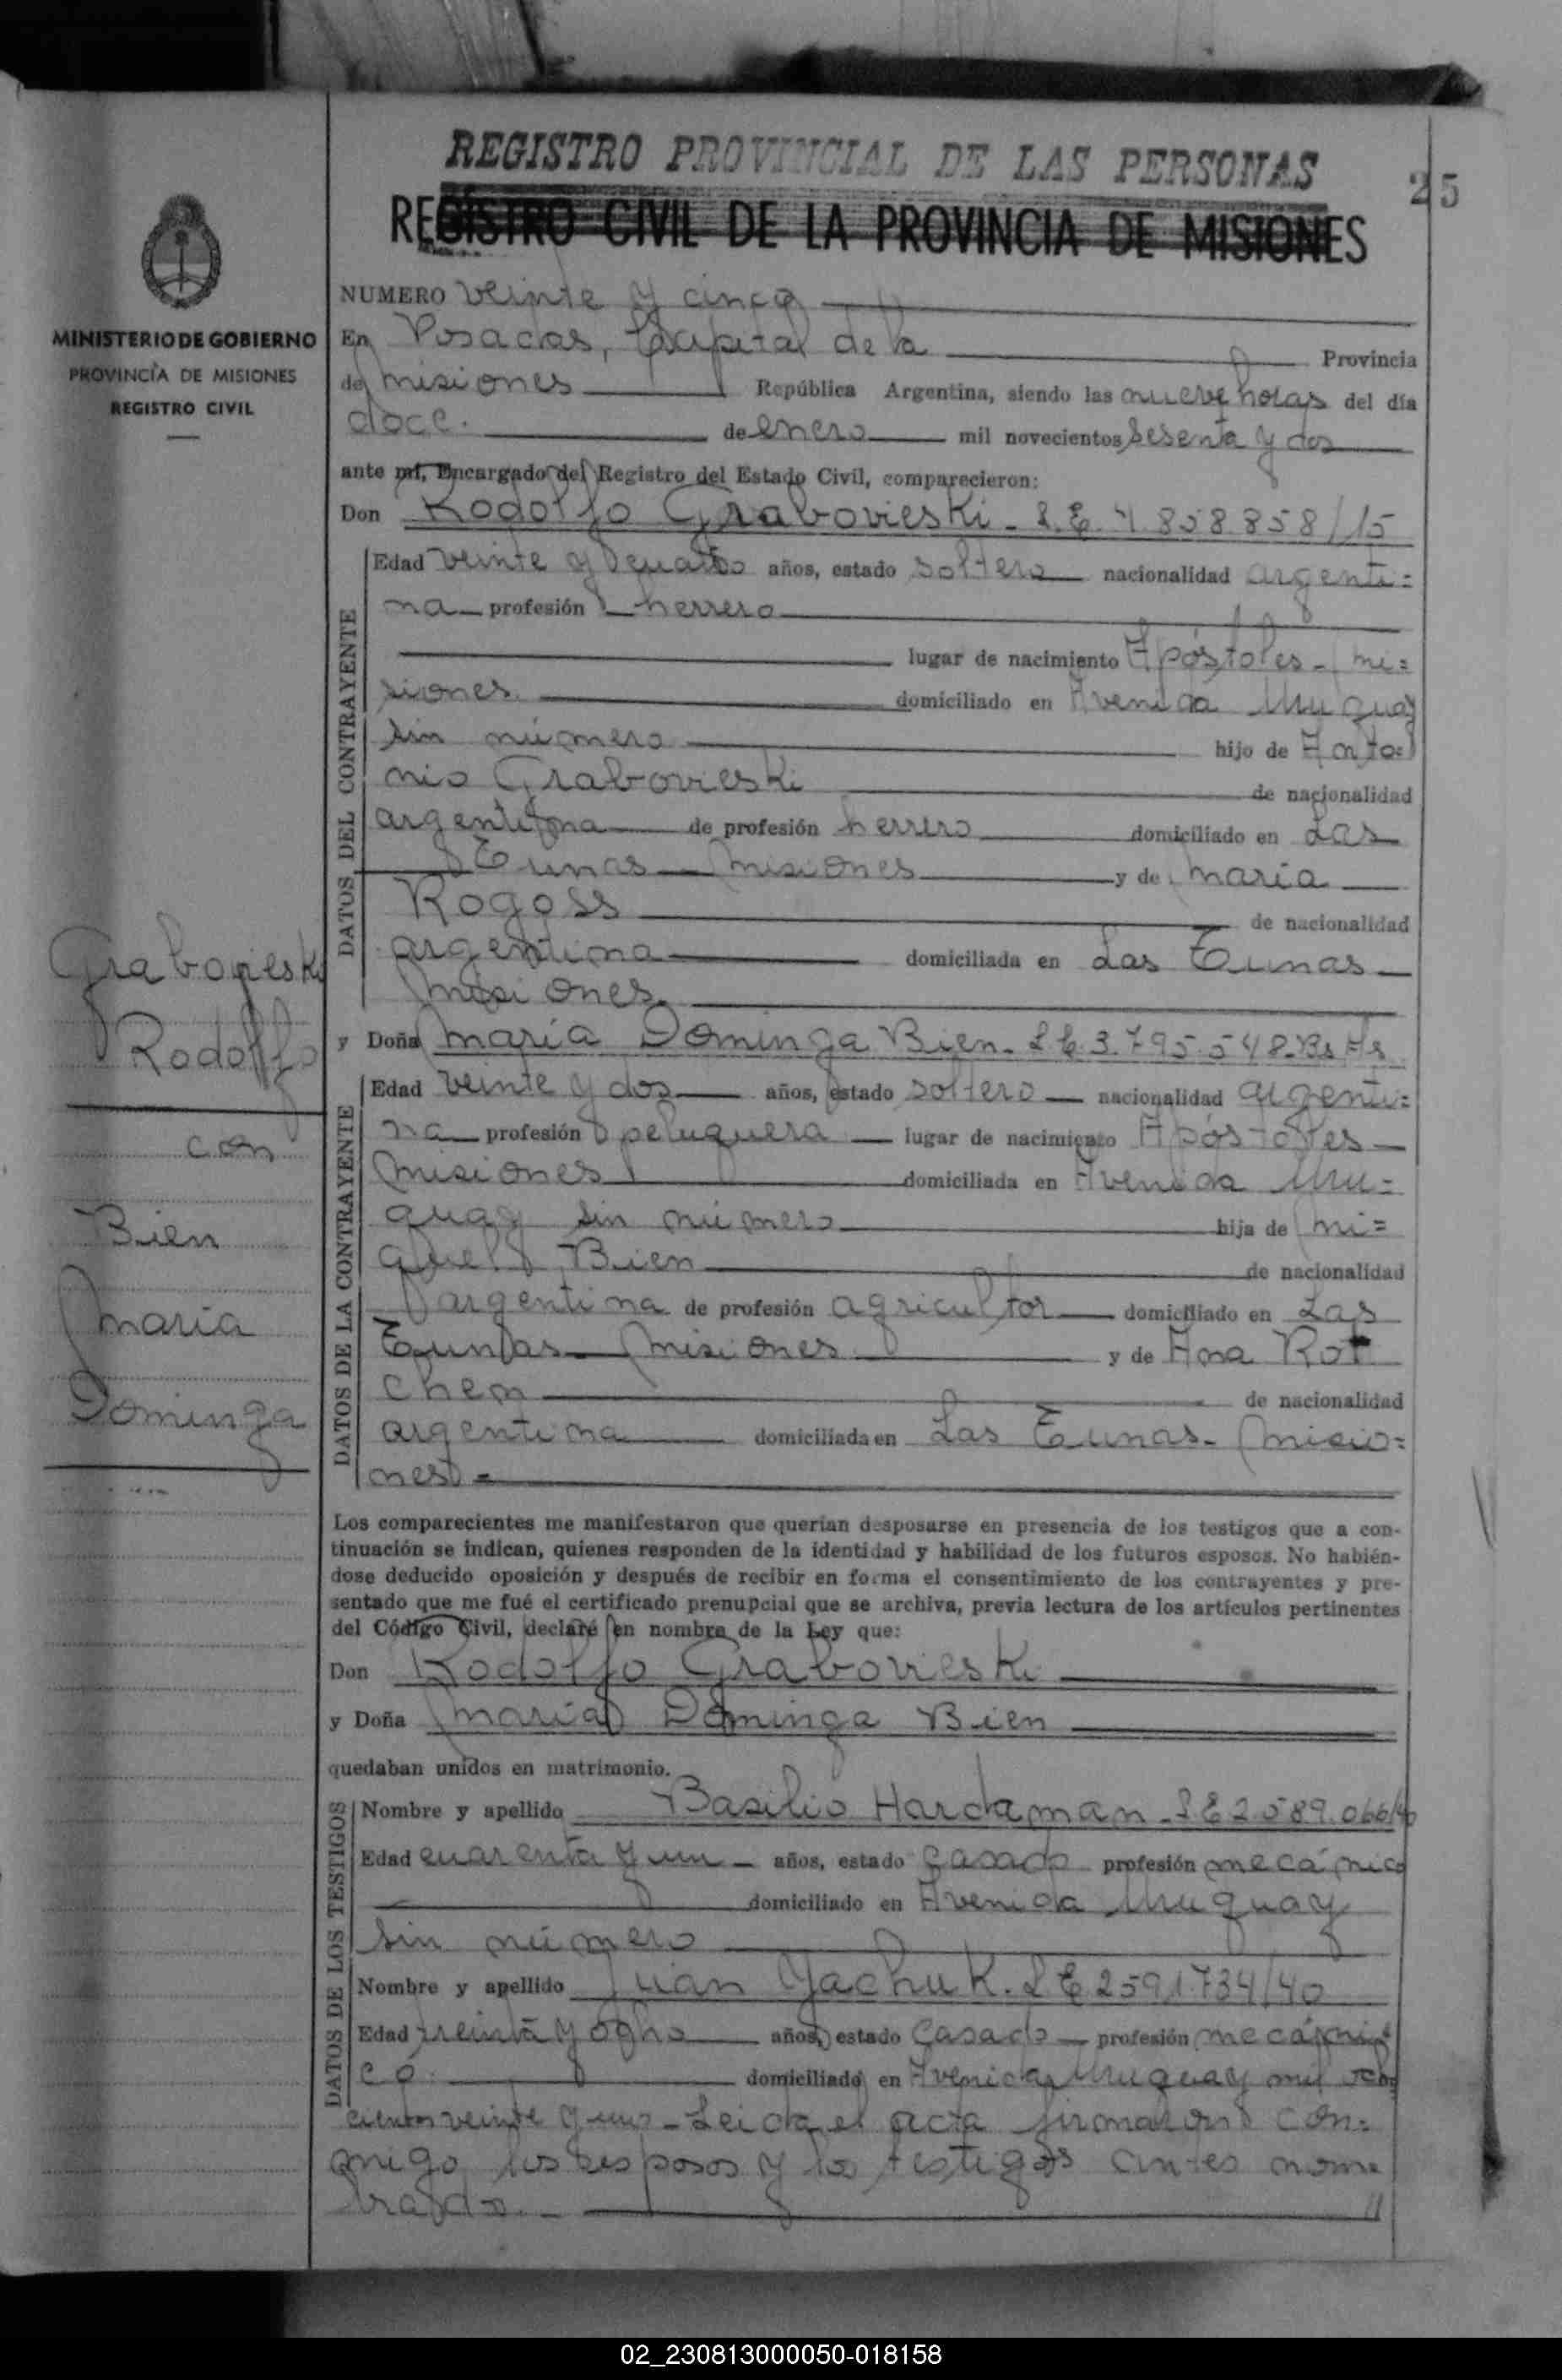 REGISTRO PROVINCIAL DE LAS PERSONAS
25
REGISTRO CIVIL DE LA PROVINCIA DE MISIONES
MINISTERIO DE GOBIERNO
PROVINCIA DE MISIONES
REGISTRO CIVIL
NUMERO veinte y cinco
En Posadas, Capital de la Provincia
de misiones República Argentina, siendo las nueve horas del día
doce. de enero mil novecientos sesenta y dos
ante mí, Encargado del Registro del Estado Civil, comparecieron:
Don Rodolfo Grabovieski - L.E. 7.858.858/15
DATOS DEL CONTRAYENTE
Edad veinte y cuatro años, estado soltero nacionalidad argenti=
na profesión herrero
lugar de nacimiento Apóstoles - mi=
siones. domiciliado en Avenida Uruguay
sin número hijo de Anto=
nio Grabovieski de nacionalidad
argentina de profesión herrero domiciliado en Las
Tunas - misiones y de maría
Rogoss de nacionalidad
argentina domiciliada en Las Tunas
misiones.
Grabovieski
Rodolfo
con
Bien
maría
Dominga
y Doña maría Dominga Bien - L.E. 3.795.548. Bs As
DATOS DE LA CONTRAYENTE
Edad veinte y dos años, estado soltero nacionalidad argenti=
na profesión peluquera lugar de nacimiento Apóstoles
misiones domiciliada en Avenida Uru=
guay sin número hija de mi=
guel Bien de nacionalidad
argentina de profesión agricultor domiciliado en Las
Tunas - misiones y de Ana Rot
chen de nacionalidad
argentina domiciliada en Las Tunas - misio=
nes -
Los comparecientes me manifestaron que querían desposarse en presencia de los testigos que a con-
tinuación se indican, quienes responden de la identidad y habilidad de los futuros esposos. No habién-
dose deducido oposición y después de recibir en forma el consentimiento de los contrayentes y pre-
sentado que me fué el certificado prenupcial que se archiva, previa lectura de los artículos pertinentes
del Código Civil, declaré en nombre de la Ley que:
Don Rodolfo Grabovieski
y Doña maría Dominga Bien
quedaban unidos en matrimonio.
DATOS DE LOS TESTIGOS
Nombre y apellido Basilio Hardaman - L.E 2.589.066/40
Edad cuarenta y un años, estado casado profesión mecánico
domiciliado en Avenida Uruguay
sin número
Nombre y apellido Juan Yachuk. L E 2591.734/40
Edad treinta y ocho años, estado casado profesión mecáni
co. domiciliado en Avenida Uruguay mil ocho
cientos veinte y uno - Leida el acta firmaron con=
migo los esposos y los testigos antes nom
brados. -
02_230813000050-018158